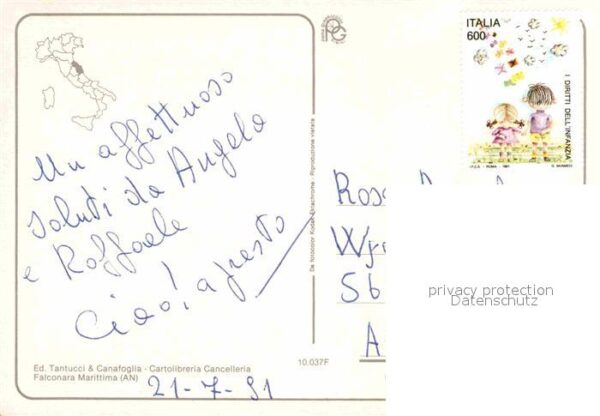 ITALIA
600
I DIRITTI DELL'INFANZIA
Un affettuoso
saluti da Angela
e Raffaele
Ciao! a presto
De fotocolor Kodak Ektachrome - Riproduzione vietata
Rosa
Wy
56
A
privacy protection
Datenschutz
10.037F
Ed. Tantucci & Canafoglia - Cartolibreria Cancelleria
Falconara Marittima (AN)
21-7-91